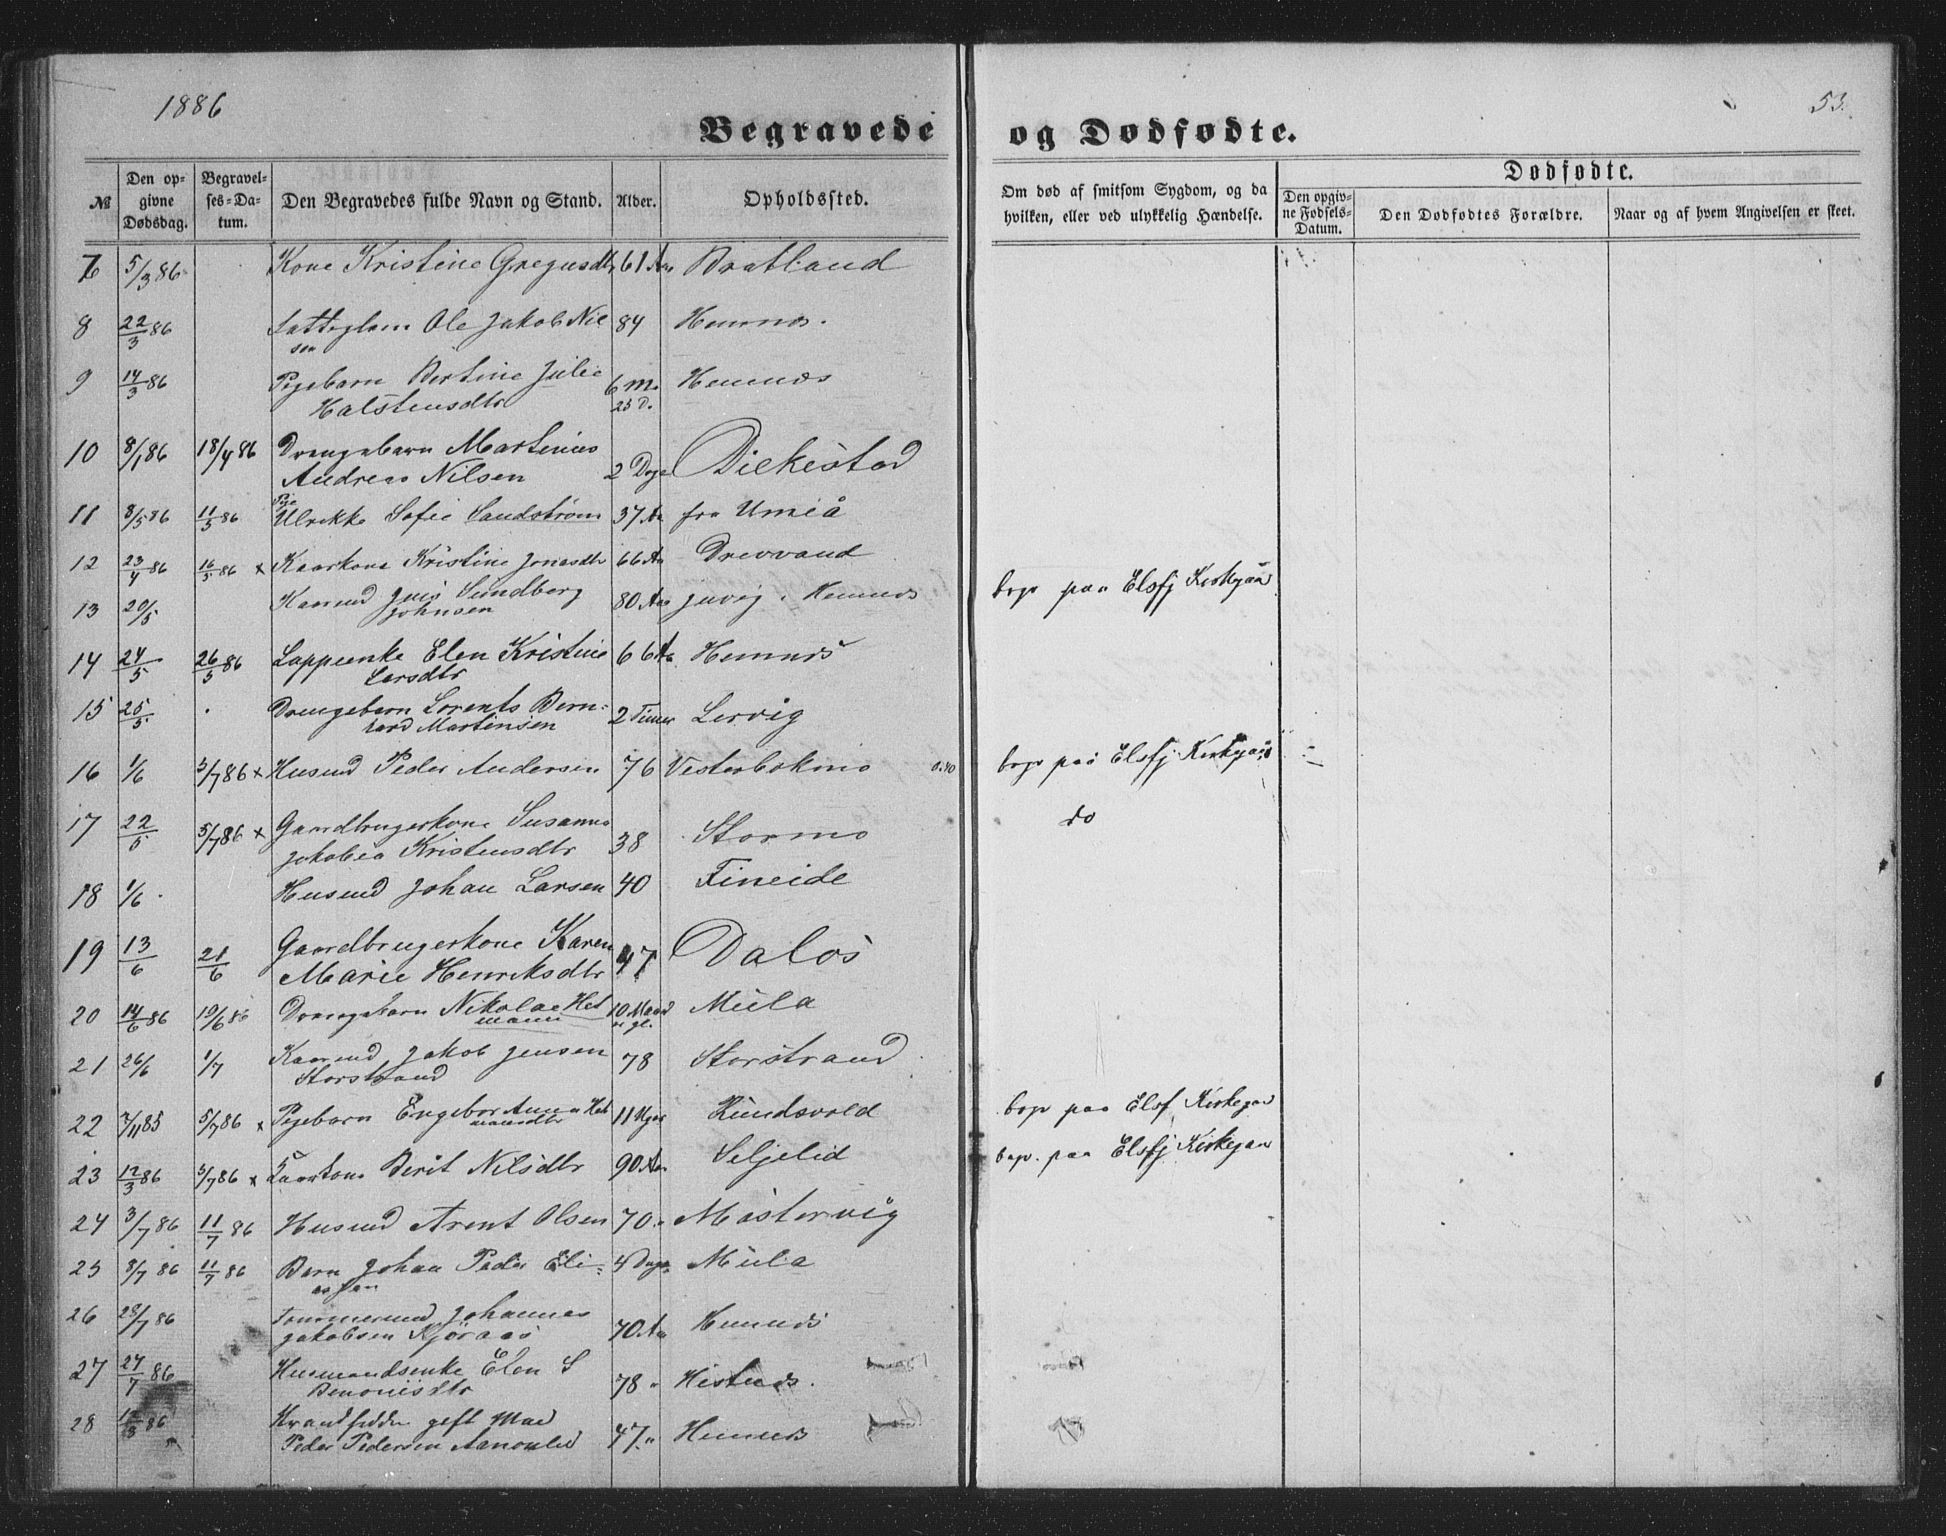 1886
53.
Begravede og Dødfødte.
№ Den opgivne Dødsdag. Begravelses-Datum. Den Begravedes fulde Navn og Stand. Alder. Opholdssted. Om død af smitsom Sygdom, og da hvilken, eller ved ulykkelig Hændelse. Dødfødte. Den opgivne Fødsels-Datum. Den Dødfødtes Forældre. Naar og af hvem Angivelsen er skeet.
7 5/3 86 Kone Kristine Gregusdtr 61 Aar Bratland
8 22/3 86 Ole Jakob Nielsen 84 Hemnes.
9 14/3 86 Pigebarn Bertine Julie 6 M. Hemnæs
Halstensdtr 25 D.
10 8/1 86 18/4 86 Drengebarn Martinius
Andreas Nilsen 2 Dage
11 8/5 86 11/5 86 Pige
Ulrikke Sofie Sandstrøm 37 Aa fra Umeå
12 23/4 86 16/5 86 x Kaarkone Kristine Jonasdtr 66 Aa Drevvand begr paa Elsfj Kirkegaard
13 20/5 Kaarmd Jens Sundberg 80 Aar Juvig. Hemnes
Johnsen
14 24/5 26/5 86 Lappenke Elen Kristine 66 Aa Hemnes
Larsdtr
15 25/5 Drengebarn Lorents Bern- 2 Timer Lervig
hard Martinsen
16 1/6 5/7 86 x Husmd Peder Andersen 76 begr paa Elsfj Kirkegaard
17 22/5 5/7 86 x Gaardbrugerkone Susanna do
Jakobea Kristensdtr 38 Stormo
18 1/6 Husmd Johan Larsen 40 Fineide
19 13/6 21/6 Gaardbrugerkone Karen
Marie Henriksdtr 47 Dalos
20 14/6 86 19/6 86 Drengebarn Nikolae 10 Maaned Mula
21 26/6 1/7 Kaarmd Jakob Jensen 78 Storstrand
Storstrand
22 7/11 85 5/7 86 x Pigebarn Engebor Anna 11 Uger begr paa Elsf Kirkegaard
23 12/3 86 5/7 86 x Kaarkone Berit Nilsdtr 90 Aar Seljelid begr. paa Elsfj Kirkegaar
24 3/7 86 11/7 86 Husmd Arent Olsen 70 " Mastervig
25 8/7 86 11/7 86 Barn Johan Peder Eli- 4 Dage Mula
assen
26 28/7 86 Tømmermd Johannes
Jakobsen 70 Aa Hemnes
27 27/7 86 Husmandsenke Elen S
Benonisdtr 78 "
28 86 gift Mad
Peder Pedersen 47 " Hemnes